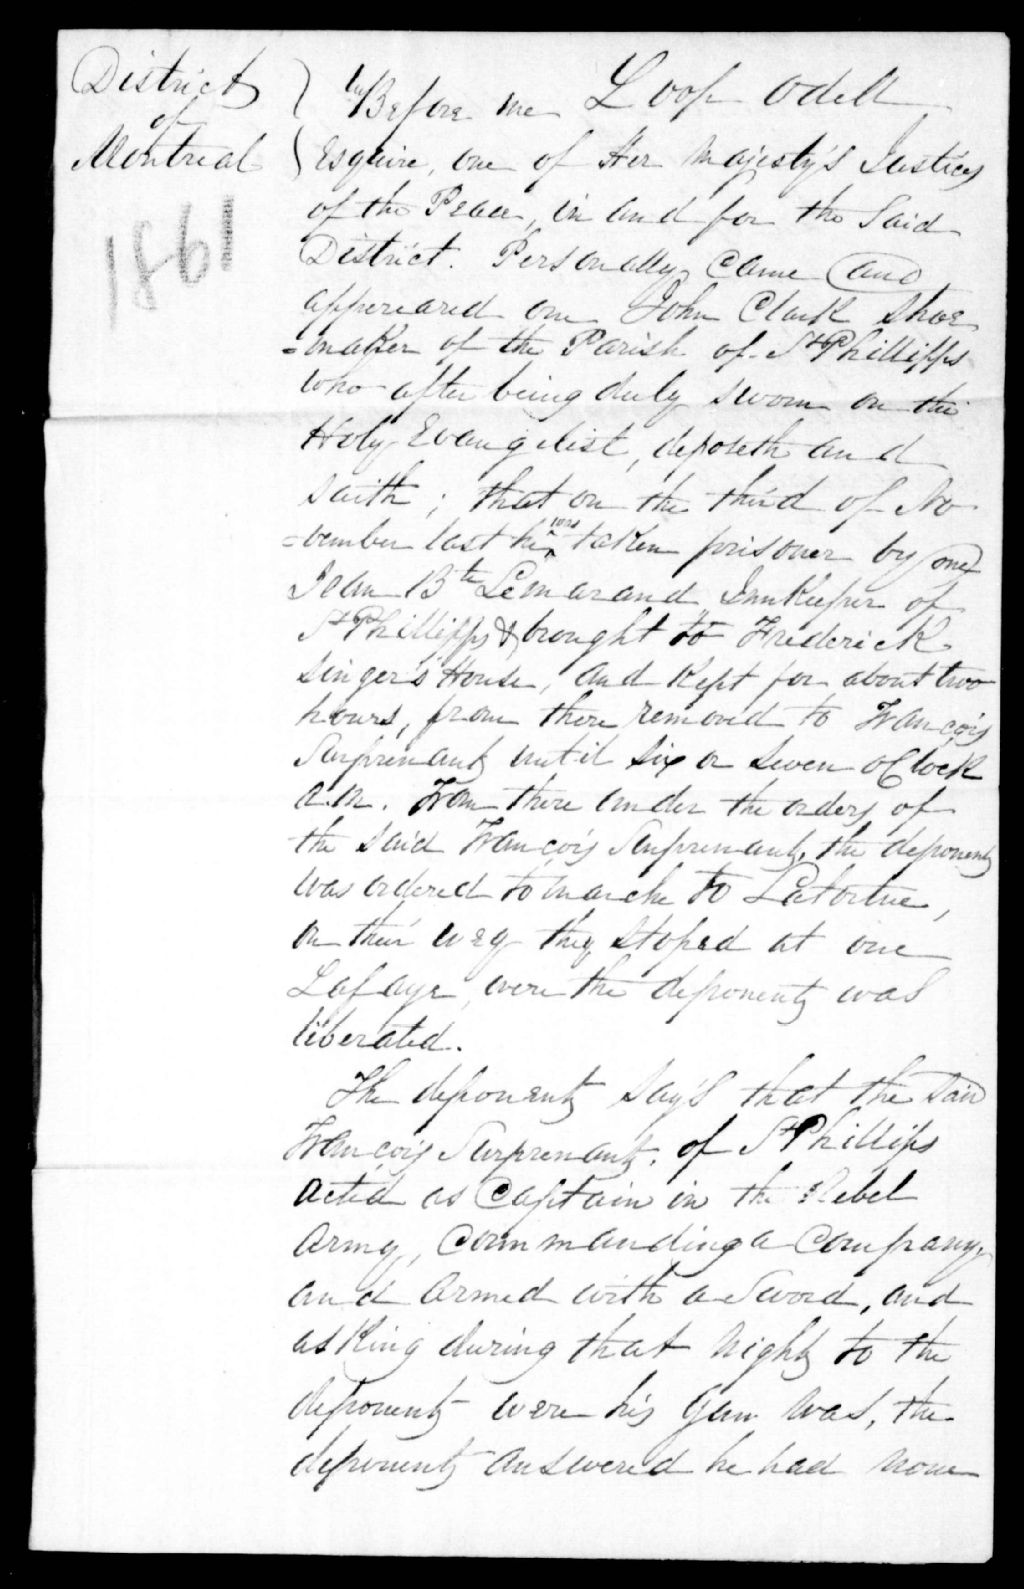 District
of
Montreal
1861
Before me Loop Odell
Esquire, one of Her Majesty's Justices
of the Peace, in and for the Said
District. Personally came and
appereared one John Clark Shoe
=maker of the Parish of St Phillipps
who after being duly sworn on the
Holy Evangelist, deposeth and
saith; that on the third of No
=vember last he was taken prisoner by one
Jean Bte Lemarand Innkeeper of
St Phillipps & brought to Frederick
Singer's House, and kept for about two
hours, from there removed to François
Surprenant until six or seven oClock
a.m. From there under the orders of
the said François Surprenant, the deponent
was ordered to marche to Latortue,
on their way they stoped at one
Lafaye, were the deponent was
liberated.
The deponent say's that the said
François Surprenant. of St Phillips
acted as Captain in the Rebel
Army, Commanding a Company,
and armed with a Sword, and
asking during that night to the
deponent were his gun was, the
deponent answered he had none